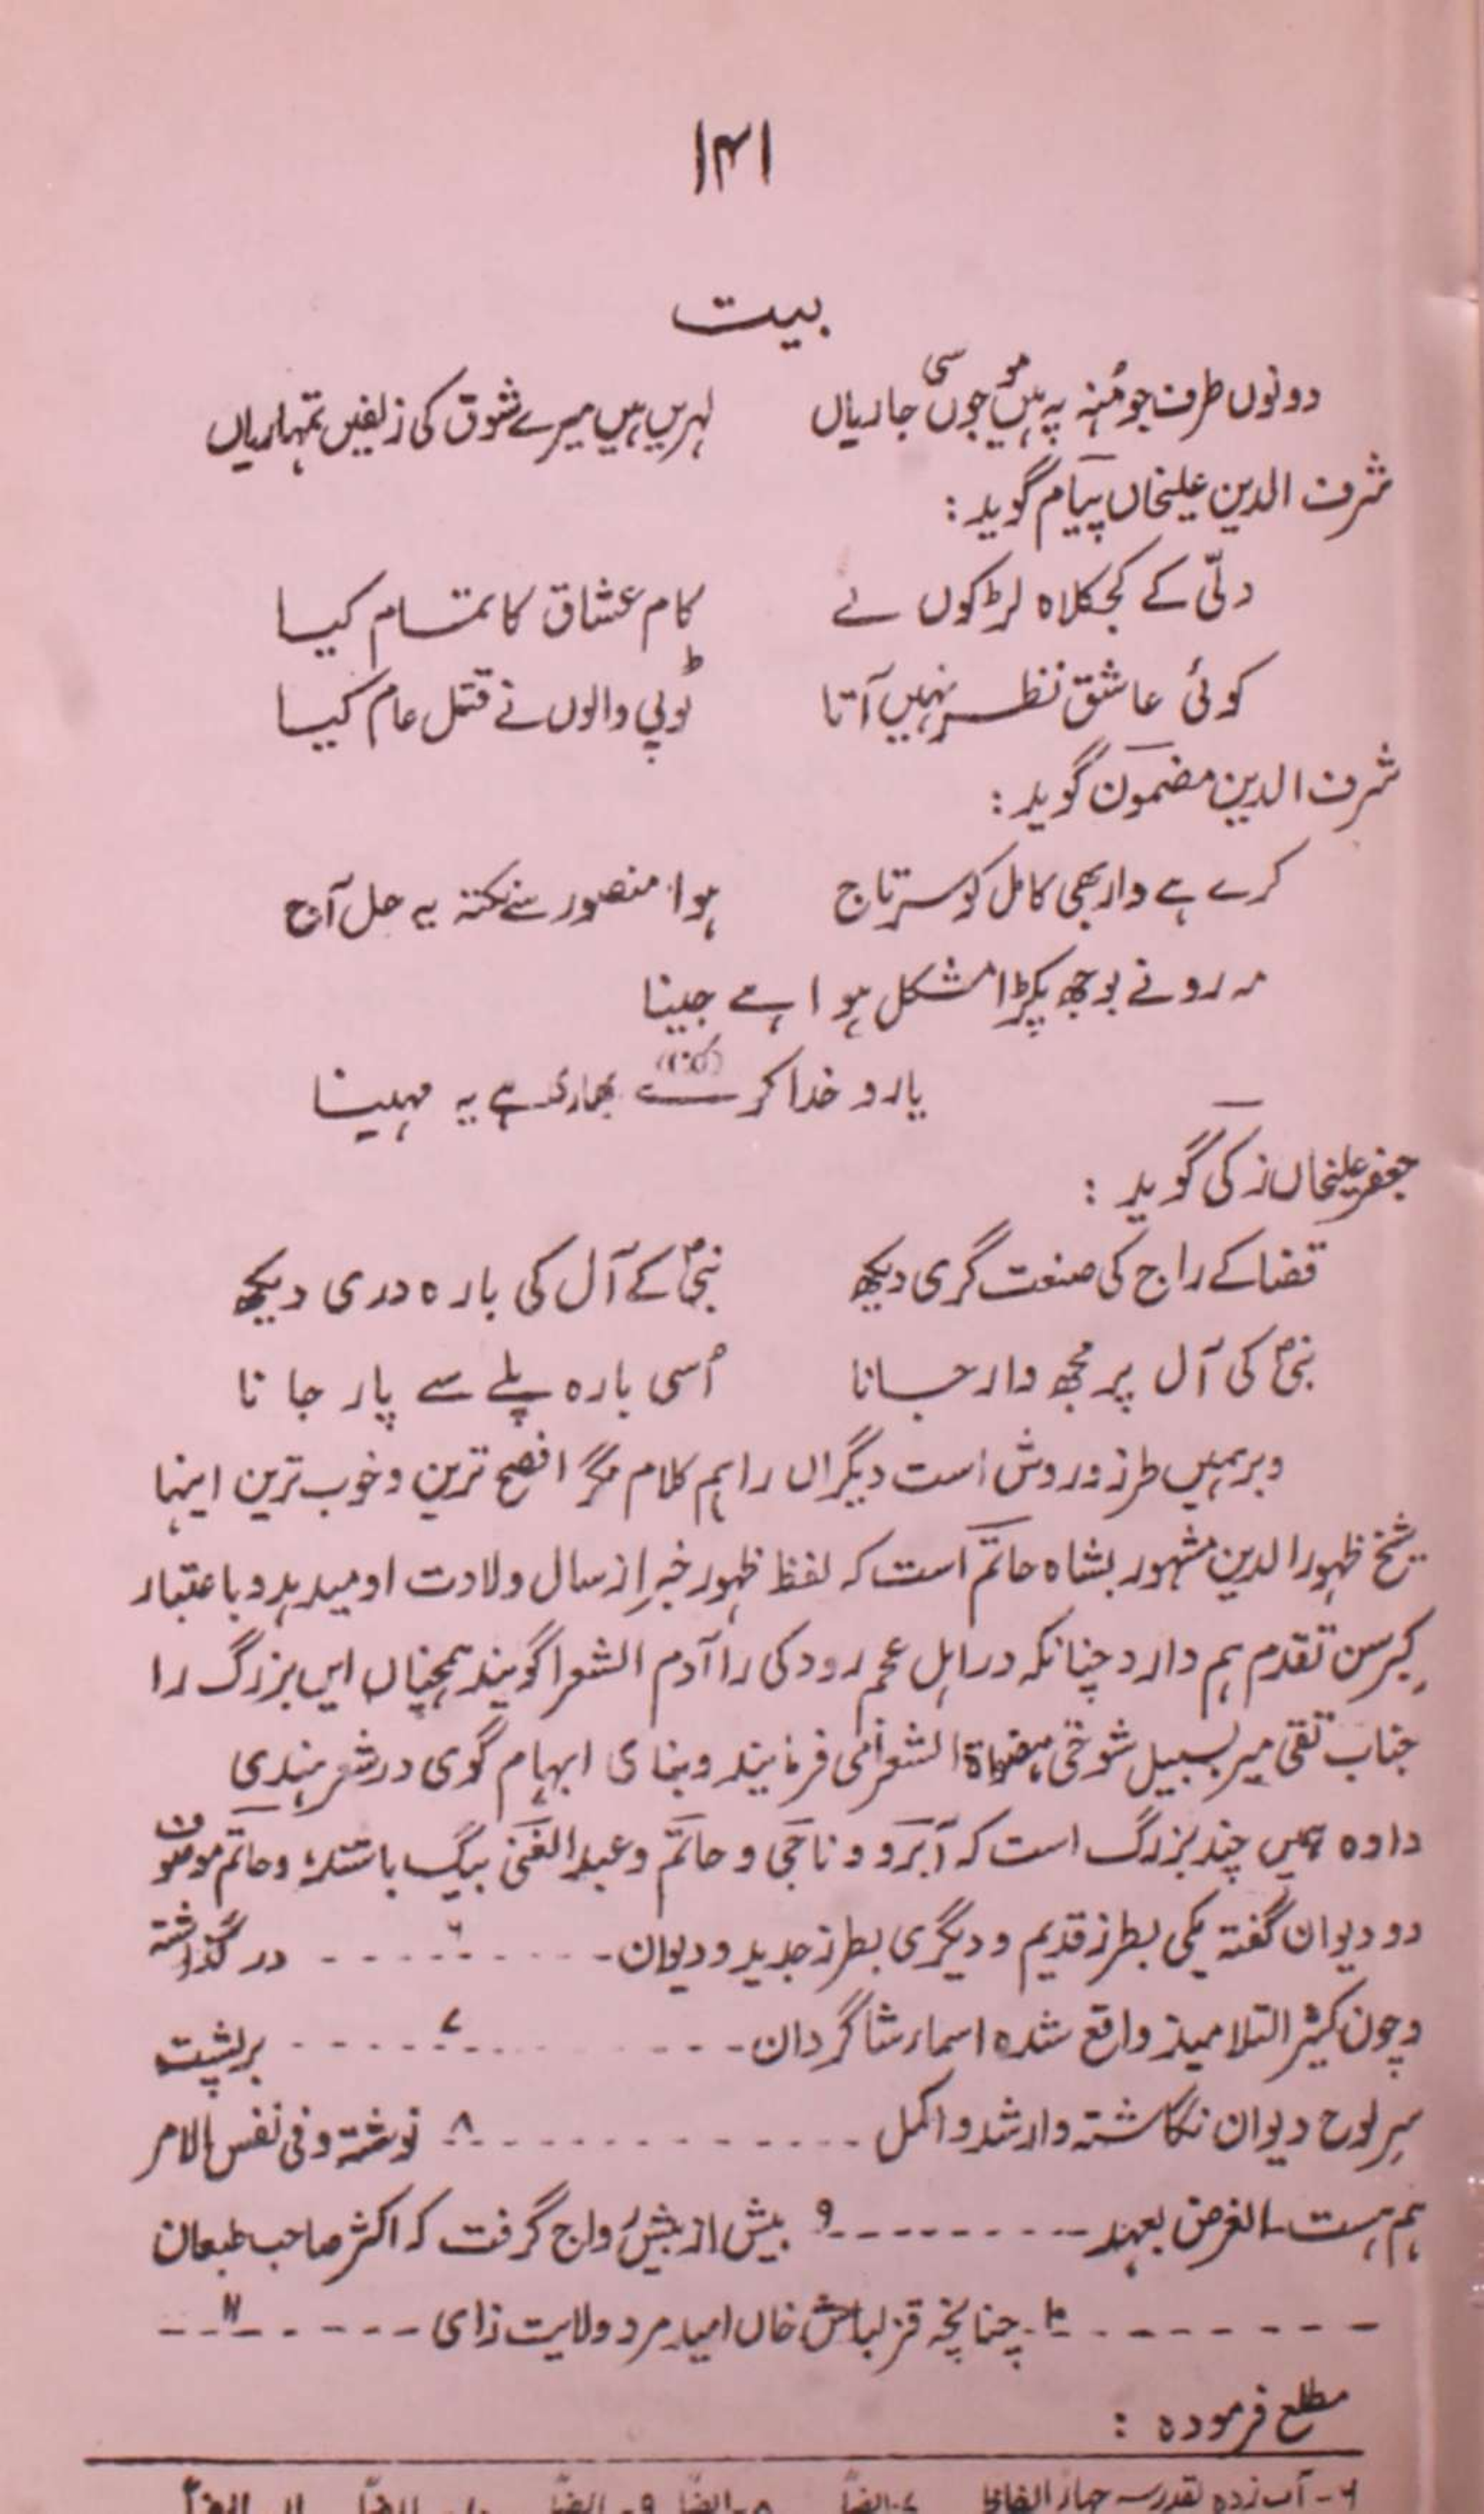 ۱۴۱
بیت
دونوں طرف جو مُنہ پہ ہیں موجوں سی جاریاں لہریں ہیں میرے شوق کی زلفیں تمہاریاں
شرف الدین علیخاں پیام گوید :
دلّی کے کجکلاہ لڑکوں نے کام عشاق کا تمام کیا
کوئی عاشق نظر نہیں آتا ٹوپی والوں نے قتل عام کیا
شرف الدین مضمون گوید :
کرے ہے دار بھی کامل کو سرتاج ہوا منصور سے نکتہ یہ حل آج
مہ رو نے بوجھ پکڑا مشکل ہوا ہے جینا
یارو خدا کرے بھاری ہے یہ مہینا
جعفر علیخاں زکی گوید :
قضا کے راج کی صنعت گری دیکھ نبیؐ کے آل کی بارہ دری دیکھ
نبیؐ کی آل پر مجھ وار جانا اُسی بارہ پلے سے پار جانا
و برہمیں طرز و روش است دیگراں را ہم کلام مگر افصح ترین و خوب ترین اینہا
شیخ ظہور الدین مشہور بشاہ حاتم است کہ لفظ ظہور خبر از سال ولادت او میدہد و باعتبار
کبر سن تقدم ہم دارد چنانکہ در اہل عجم رودکی را آدم الشعرا گویند ہمچناں ایں بزرگ را
جناب تقی میر بسبیل شوخی الشعرا می فرمایند و بنای ابہام گوی در شعر ہندی
دادہ ہمیں چند بزرگ است کہ آبرو و ناجی و حاتم و عبدالغنی بیگ باشند و حاتم موصوف
دو دیوان گفتہ یکی بطرز قدیم و دیگری بطرز جدید و دیوان - - - - ۶ - - - - در گذاشتہ
و چون کثیر التلامیذ واقع شدہ اسماء شاگردان - - - - - ۷ - - - - بر پشت
سر لوح دیوان نگاشتہ و ارشد و اکمل - - - - - - - - ۸ نوشتہ و فی نفس الامر
ہم ہست۔ الغرض بعہد - - - - - - - ۹ بیش از بیش رواج گرفت کہ اکثر صاحب طبعان
- - - - - - - ۱۰ چنانچہ قزلباش خاں امید مرد ولایت زای - - - - ۱۱ - -
مطلع فرمودہ :
۶ - آب زدہ بقدر سہ چہار الفاظ ۷ - ایضاً ۸ - ایضاً ۹ - ایضاً ۱۰ - ایضاً ۱۱ - ایضاً